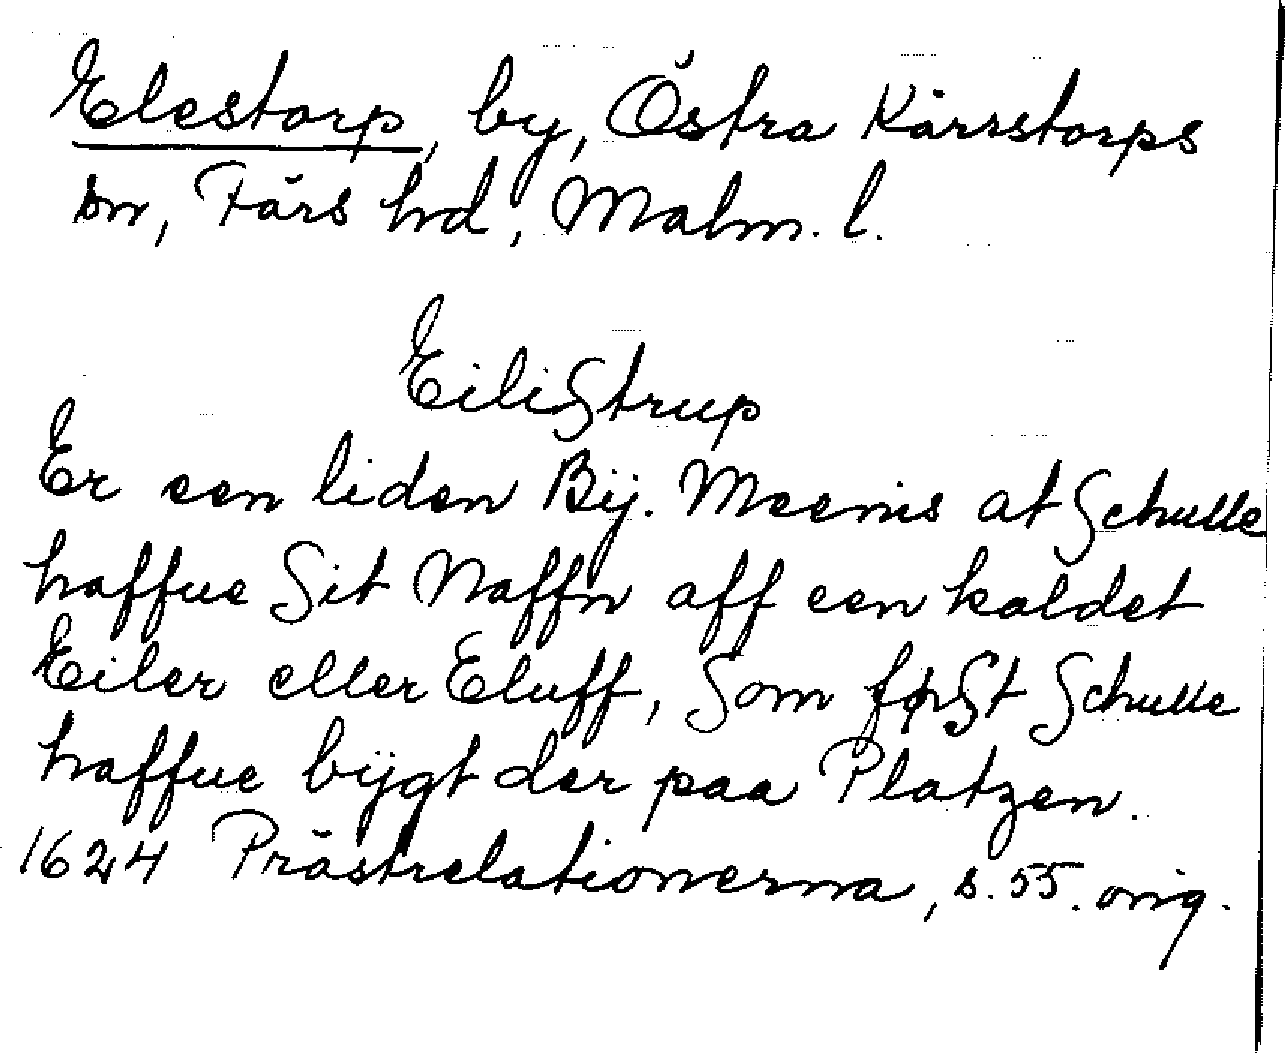 Elestorp, by, Östra Kärrstorps
sn, Färs hd, Malm. l.
EiliStrup
Er een liden Bij. Meenis at Schulle
haffue Sit Naffn aff een kaldet
Eiler eller Eluff, Som førSt Schulle
haffue bÿgt der paa Platzen.
1624 Prästrelationerna, s. 55. orig.